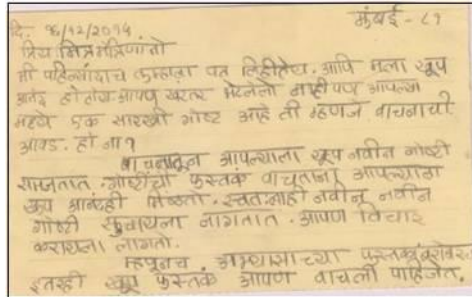 दि. १६/१२/२०१५ मुंबई - ८१
प्रिय मित्रमैत्रिणींनो
मी पहिल्यांदाच तुम्हाला पत्र लिहीतेय. आणि मला खूप
आनंद होतोय. आपण खरतर भेटलेलो नाही पण आपल्या
मध्ये एक सारखी गोष्ट आहे ती म्हणजे वाचनाची
आवड. हो ना?
वाचनातून आपल्याला खूप नवीन गोष्टी
समजतात. गोष्टींची पुस्तकं वाचताना आपल्याला
खूप आनंदही मिळतो. स्वतःलाही नवीन नवीन
गोष्टी सुचायला लागतात. आपण विचार
करायला लागतो.
म्हणूनच अभ्यासाच्या पुस्तकांबरोबर
इतरही खूप पुस्तकं आपण वाचली पाहिजेत.